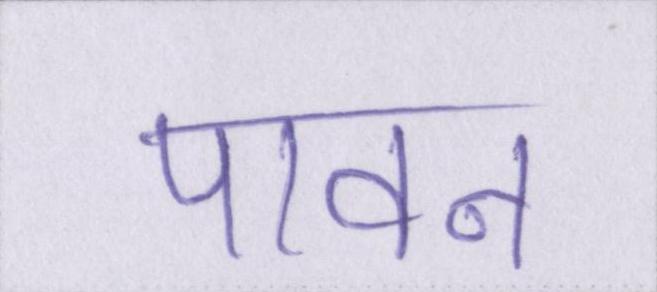 पावन